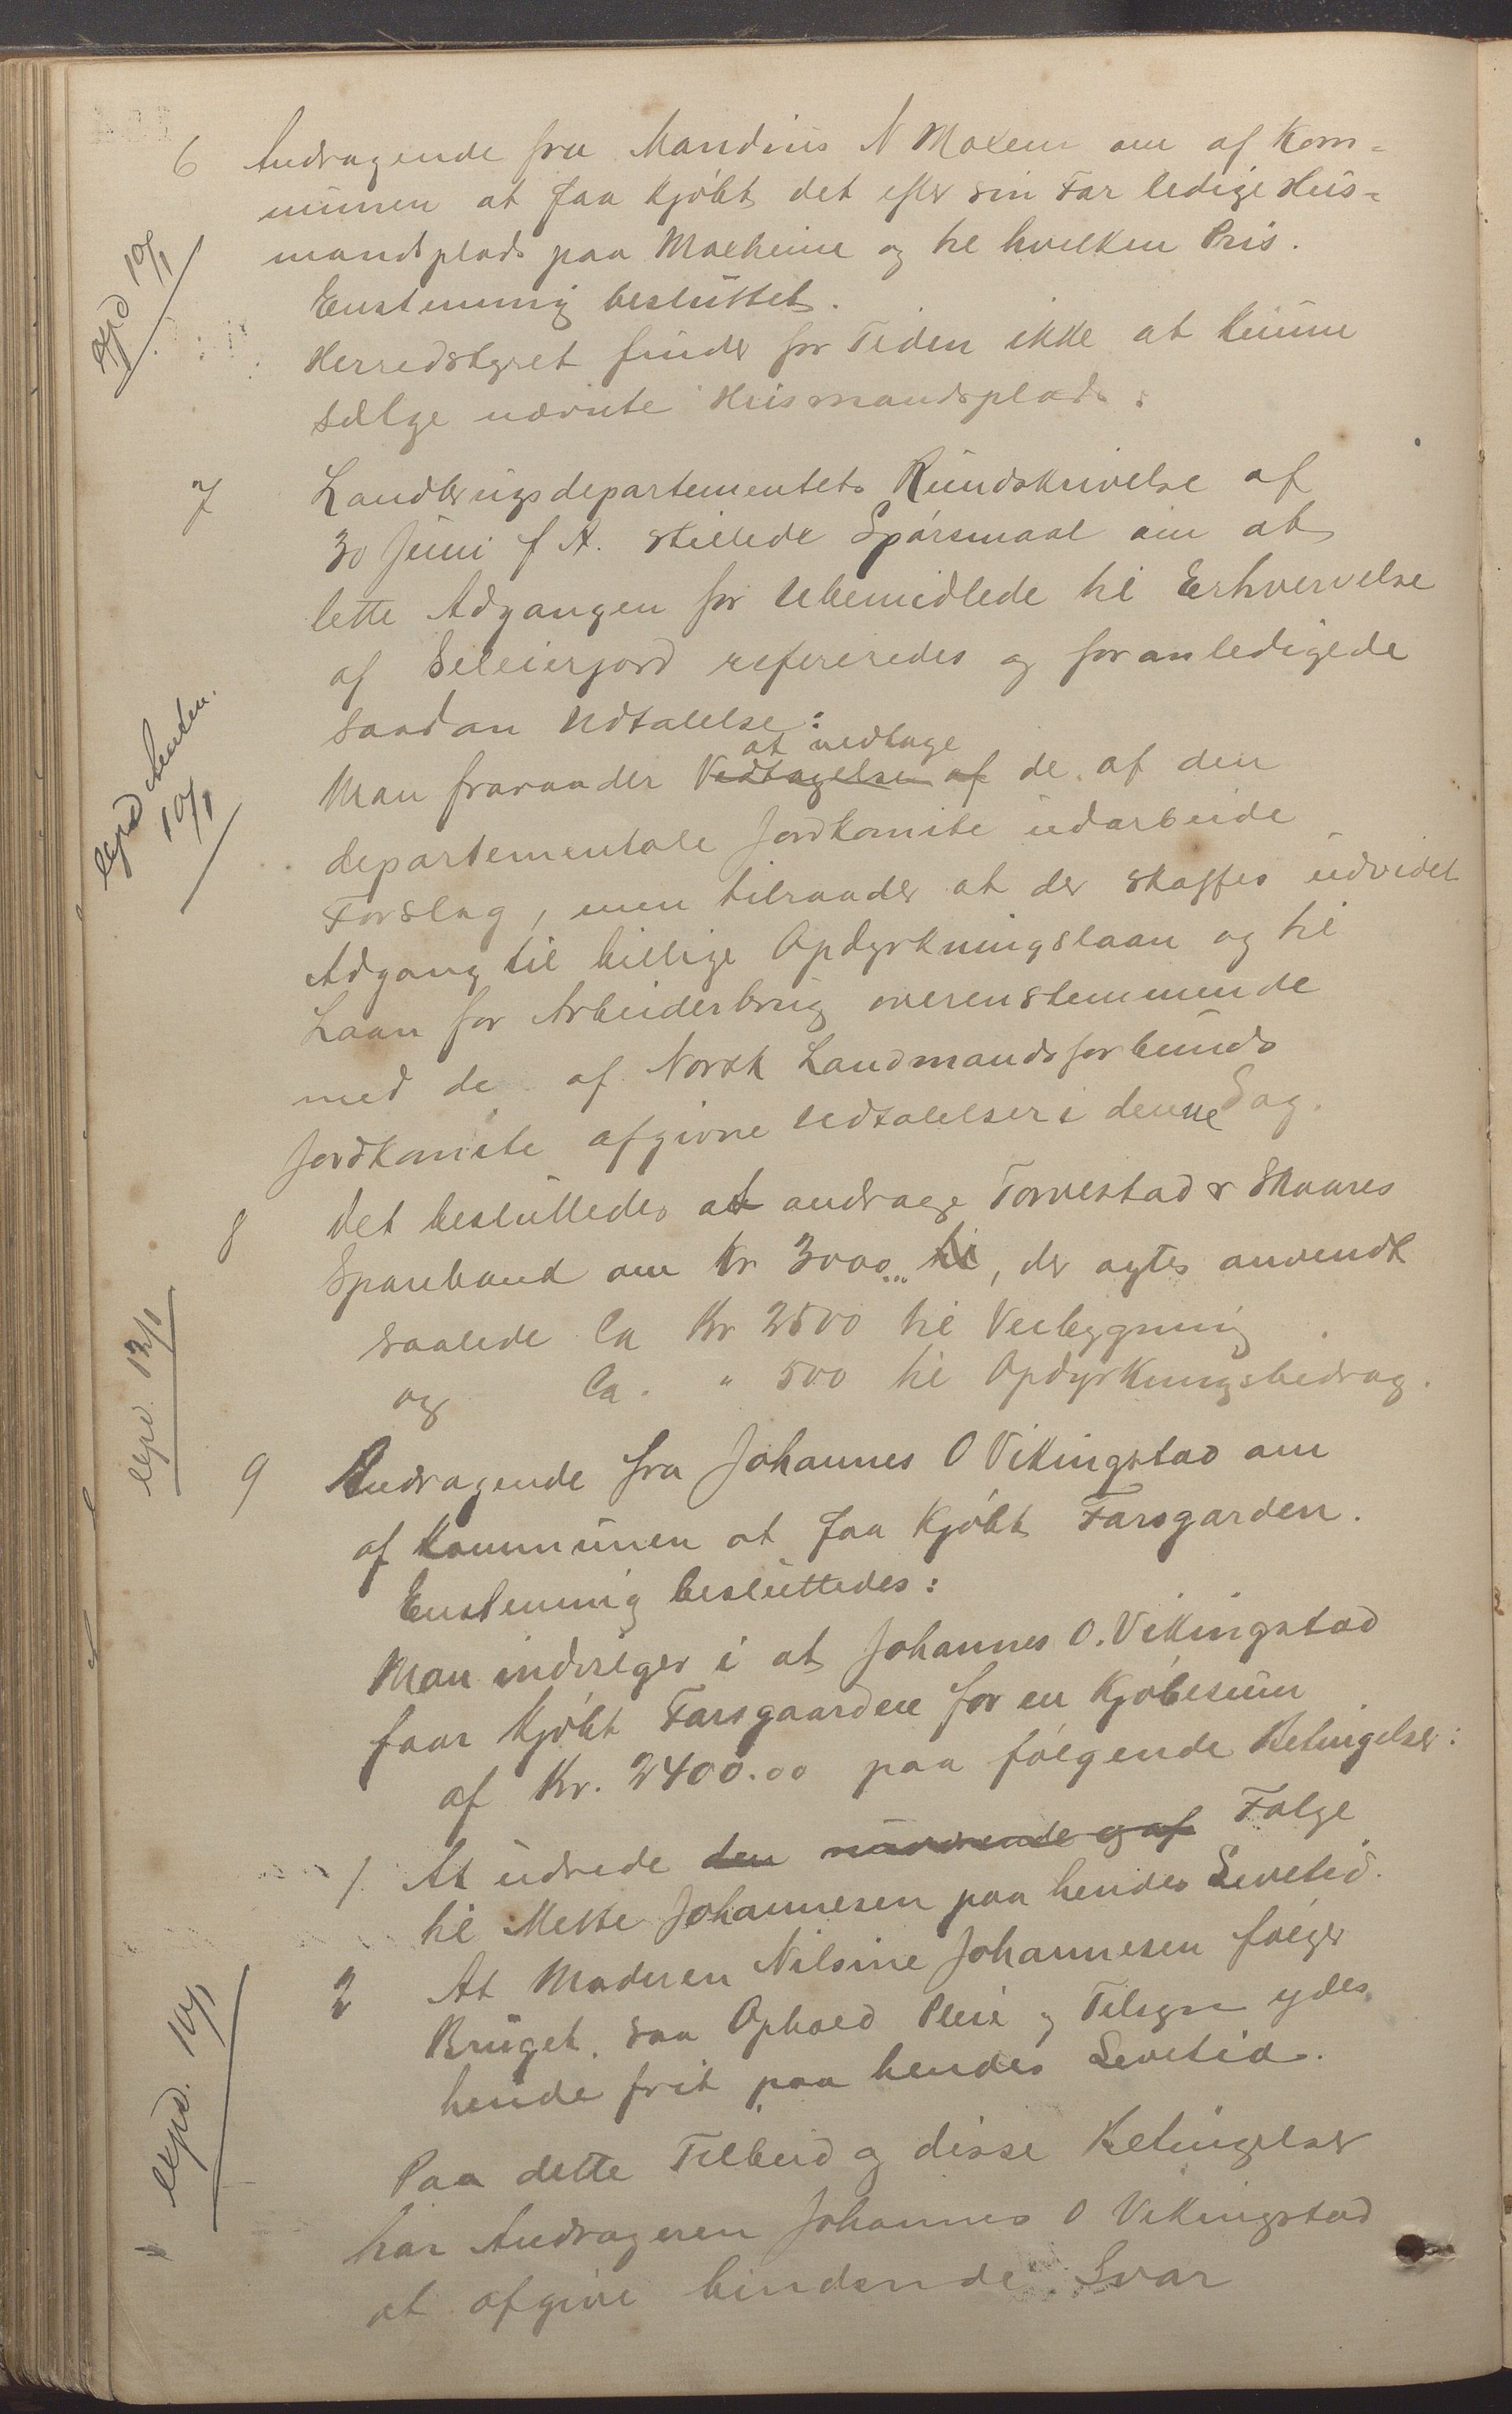 6 Andragende fra Mandius N Moxeim om af Kom-
munen at faa kjøbt det efter sin Far ledige Hus-
mandsplads paa Moxheim og til hvilken Pris.
expd 10/1
Enstemmig besluttet.
Herredstyret finder for Tiden ikke at kunne
sælge nævnte Husmandsplads.
7 Landbrugsdepartementets Rundskrivelse af
30 Juni f A. stillede Spørsmaal om at
lette Adgangen for Ubemidlede til Erhvervelse
af Seleierjord refereredes og foranledigede
saadan Udtalelse:
expd
10/1
at vedtage
Man fraraader Vedtagelsen af de af den
departementale Jordkomite udarbeide
Forslag, men tilraader at der skaffes udvidet
Adgang til billige Opdyrkningslaan og til
Laan for Arbeiderbrug overenstemmende
med de af Norsk Landmandsforbunds
Jordkomite afgivne Udtalelser i denne Sag.
8 Det besluttedes at andrage Torvestad & Skaares
Sparebank om Kr 3000 til, der agtes anvendt
saalede Ca Kr 2500 til Veibygning
og Ca. " 500 til Opdyrkningsbedrag.
expd. 12/1
9 Andragende fra Johannes O Vikingstad om
af Kommunen at faa kjøbt Farsgarden.
Enstemmig besluttedes:
Man indvilger i at Johannes O. Vikingstad
faar kjøbt Farsgaarden for en Kjøbesum
af Kr. 2400.00 paa følgende Betingelser:
1. At udrede den nuværende og af Følge
til Mette Johannesen paa hendes Levetid.
2 At Moderen Nilsine Johannesen følger
Bruget, saa Ophold Pleie og Tilsyn ydes
hende frit paa hendes Levetid.
expd. 10/1
Paa dette Tilbud og disse Betingelser
har Andrageren Johannes O Vikingstad
at afgive bindende Svar